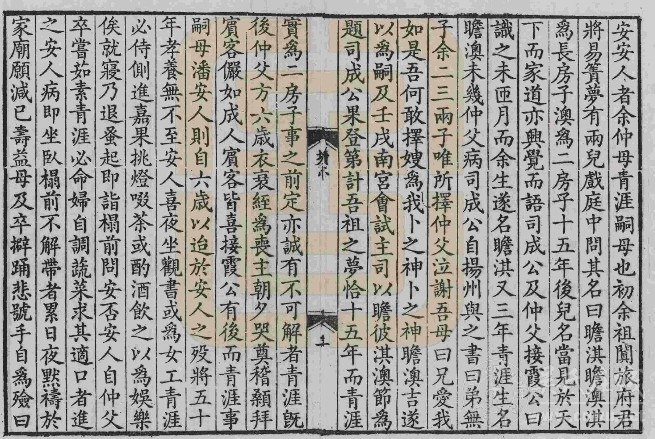 安安人者余仲母青涯嗣母也初余祖闓旅府君
將易簀夢有兩兒戲庭中問其名曰瞻淇瞻澳淇
為長房子澳為二房子十五年後兒名當見於天
下而家道亦興覺而語司成公及仲父接霞公曰
識之未匝月而余生遂名瞻淇又三年青涯生名
瞻澳未幾仲父病司成公自揚州與之書曰弟無
子余二三兩子唯所擇仲父泣謝吾母曰兄愛我
如是吾何敢擇嫂為我卜之神卜之神瞻澳吉遂
以為嗣及壬戌南宮會試主司以瞻彼淇澳節為
題司成公果登第計吾祖之夢恰十五年而青涯
實為二房子事之前定亦誠有不可解者青涯既
後仲父方六歲衣衰絰為喪主朝夕哭奠稽顙拜
賓客儼如成人賓客皆喜接霞公有後而青涯事
嗣母潘安人則自六歲以迨於安人之歿將五十
年孝養無不至安人喜夜坐觀書或為女工青涯
必侍側進嘉果挑燈啜茶或酌酒飲之以為娛樂
俟就寢乃退蚤起即詣榻前問安否安人自仲父
卒嘗茹素青涯必命婦自調蔬菜求其適口者進
之安人病即坐臥榻前不解帶者累日夜默禱於
家廟願減己壽益母及卒擗踊悲號手自為殮曰